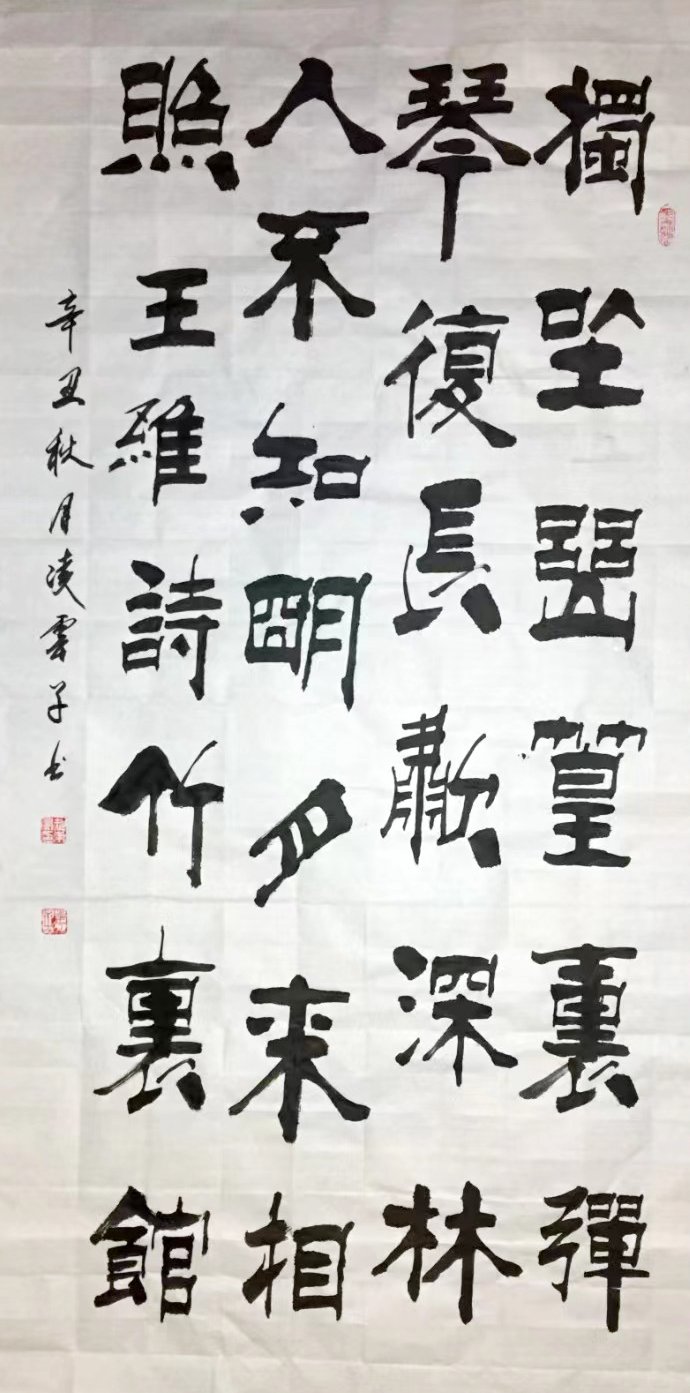 獨坐幽篁裏彈
琴復長歗深林
人不知朙月來相
照王維詩竹裏館
辛丑秋月凌雲子书